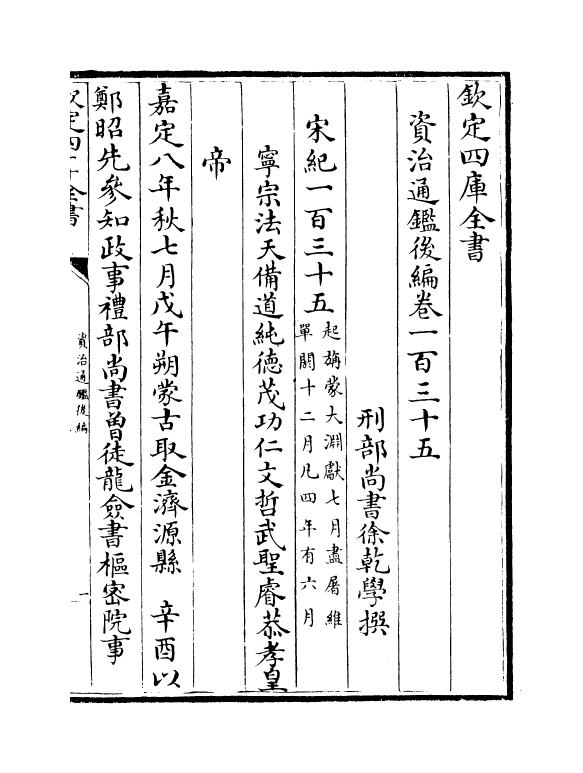 欽定四庫全書
資治通鑑後編卷一百三十五
刑部尚書徐乾學撰
宋紀一百三十五
起旃蒙大淵獻七月盡屠維
單閼十二月凡四年有六月
寧宗法天備道純德茂功仁文哲武聖睿恭孝皇
帝
嘉定八年秋七月戊午朔蒙古取金濟源縣　辛酉以
鄭昭先參知政事禮部尚書曾從龍僉書樞密院事
欽定四庫全書
資治通鑑後編
一